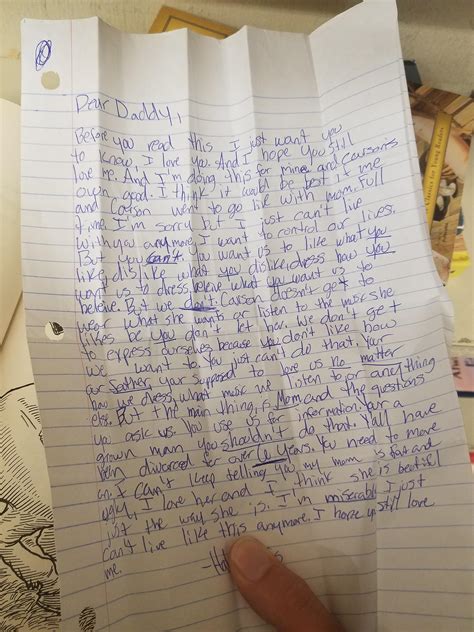 Dear Daddy,
Before you read this I just want you
to know, I love you. And I hope you still
love me. And I'm doing this for mine and Carson's
own good. I think, it would be best if me
and Carson went to go live with mom full
time. I'm sorry but I just can't live
with you anymore. I want to control our lives.
But you can't. You want us to like what you
like, dislike what you dislike, dress how you
want us to dress, believe what you want us to
believe. But we don't. Carson doesn't get to
wear what she wants or listen to the music she
likes be you don't let her. We don't get
to express ourselves because you don't like how
we want to. You just can't do that. Your
our father, your supposed to love us no matter
how we dress, what music we listen to or any thing
else. But the main thing, is Mom and the questions
you ask us. You use us for information. Your a
grown man you shouldn't do that. Yall have
been divorced for over 6 years. You need to move
on. I can't keep telling you my mom is fat and
ugly, I love her and I think she is beutiful
just the way she is. I'm miserable I just
can't live like this anymore. I hope u still love
me.